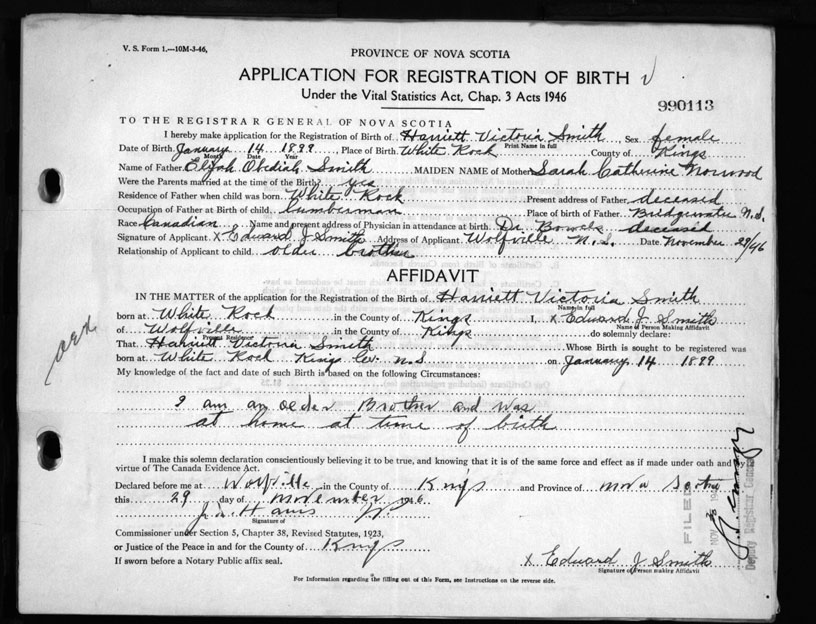 V. S. Form 1.—10M-3-46,
PROVINCE OF NOVA SCOTIA
APPLICATION FOR REGISTRATION OF BIRTH
Under the Vital Statistics Act, Chap. 3 Acts 1946
990113
TO THE REGISTRAR GENERAL OF NOVA SCOTIA
I hereby make application for the Registration of Birth of Harriett Victoria Smith, Sex female
Print Name in full
Date of Birth January 14 1899 Place of Birth White Rock County of Kings
Month Date Year
Name of Father Elijah Obediah Smith MAIDEN NAME of Mother Sarah Catherine Norwood
Were the Parents married at the time of the Birth? yes
Residence of Father when child was born White Rock Present address of Father deceased
Occupation of Father at Birth of child Lumberman Place of Birth of Father Bridgewater N.S.
Race Canadian Name and present address of Physician in attendance at birth Dr. Bowles deceased
Signature of Applicant X Edward J Smith Address of Applicant Wolfville N.S. Date November 29/46
Relationship of Applicant to child older brother
AFFIDAVIT
IN THE MATTER of the application for the Registration of the Birth of Harriett Victoria Smith
Name in full
born at White Rock in the County of Kings I, X Edward J Smith
Name of Person Making Affidavit
of Wolfville in the County of Kings do solemnly declare:
Present Residence
That Harriett Victoria Smith Whose Birth is sought to be registered was
born at White Rock Kings Co. N.S on January 14 1899
My knowledge of the fact and date of such Birth is based on the following Circumstances:
I am an older Brother and was
at home at time of birth
I make this solemn declaration conscientiously believing it to be true, and knowing that it is of the same force and effect as if made under oath and by
virtue of The Canada Evidence Act.
Declared before me at Wolfville in the County of Kings and Province of Nova Scotia
this 29 day of November 1946
Signature of
Commissioner under Section 5, Chapter 38, Revised Statutes, 1923,
or Justice of the Peace in and for the County of Kings
If sworn before a Notary Public affix seal.
X Edward J Smith
Signature of Person making Affidavit
For Information regarding the filling out of this Form, see Instructions on the reverse side.
FILED
Deputy Registrar General